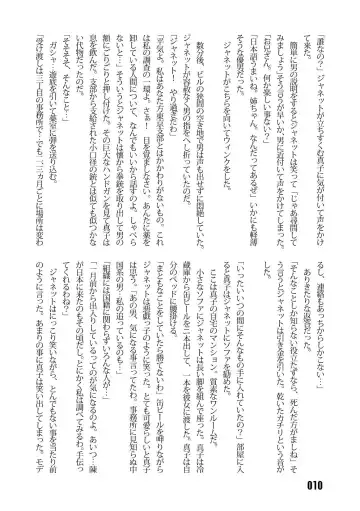 「誰なの？」ジャネットが立ちすくむ真子に気が付いて声をかけ
て来た。
　簡単に男の説明をするとジャネットは笑って「じゃあ尋問して
みましょう」そういうが早いか、男に近付いて声をかけてしまった。
「お兄さん、何か楽しい事ない？」
「日本語うまいね。姉ちゃん。なんだってあるぜ」いかにも軽薄
そうな優男だった。
　ジャネットがこちらを向いてウィンクをした。
　数分後、ビルの狭間の空き地で男は声も出せずに悶絶していた。
ジャネットが容赦なく男の指をへし折っていったのだ。
「ジャネット！　やり過ぎだわ」
「平気よ。私はあんた方東京支部とはかかわりがないもの。これ
は私の調査の一環よ。さぁ！　目を覚ましなさい。あんたに薬を
卸している人間について、なんでもいいから話すのよ。しゃべら
ないと…」そういうとジャネットは懐から薬銃を取り出して男の
額にごりごりと押し付けた。その巨大なハンドガンを見て真子は
息を飲んだ。支部から支給された小口径の銃とは似ても似つかな
い代物だったのだ。
　ガシャ…遊底を引いて薬室に弾を送り込む。
「そ、そそ、そんなこと…」
「受け渡しは二丁目の事務所で…でも一、二カ月ごとに場所は変わ
るし、連絡もあっちからしかこない…」
　ありきたりな返答だった。
「そんなことしか知らない役立たずなら、死んだ方がましね」そ
う言うとジャネットは引き金を引いた。乾いたガチリという音が
した。
「いったいいつの間にそんなもの手に入れていたの？」部屋に入
ると真子はジャネットにソファを勧めた。
　ここは真子の自宅のマンション。質素なワンルームだ。
　小さなソファにジャネットは長い脚を組んで座った。真子は冷
蔵庫から缶ビールを二本出して、一本を彼女に渡した。真子は自
分のベッドに腰掛ける。
「まともなことをしていたら勝てないわ」缶ビールを呷りながら
ジャネットは悪戯っ子のように笑った。とても可愛らしいと真子
は思う。「あの男、気になる事言ってたわ。事務所に見知らぬ中
国系の男…私の追っているのも…」
「組織には国籍に関わらずいろんな人が…」
「一月前から出入りしているってのが気になるのよ。あいつ…陳
が日本に来たのもその頃だし。とにかく私は調べてみるわ。手伝っ
てくれるわね？」
　ジャネットはにっこり笑いながら、とんでもない事を当たり前
のように言った。あまりの事に真子は笑い出してしまった。モデ
010